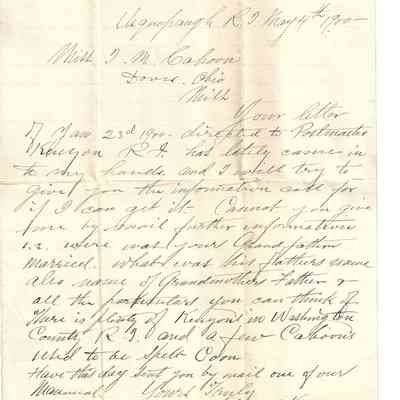 Usquepaugh R I May 4th 1900
Miss I. M. Cahoon
Dover Ohio
Miss
Your letter
of Jan 23rd 1900 directed to Postmaster
Kenyon R I. has lately came in
to my hands and I will try to
give you the information ask for
if I can get it. Cannot you give
me by mail further information
i.e. were was your Grandfather
Married. What was his fathers name
also name of Grandmothers Father &
all the particulars you can think of
There is plenty of Kenyons in Washington
County R I. and a few Cahoons
Used to be spelt Coon
Have this day sent you by mail one of our
Yours Truly